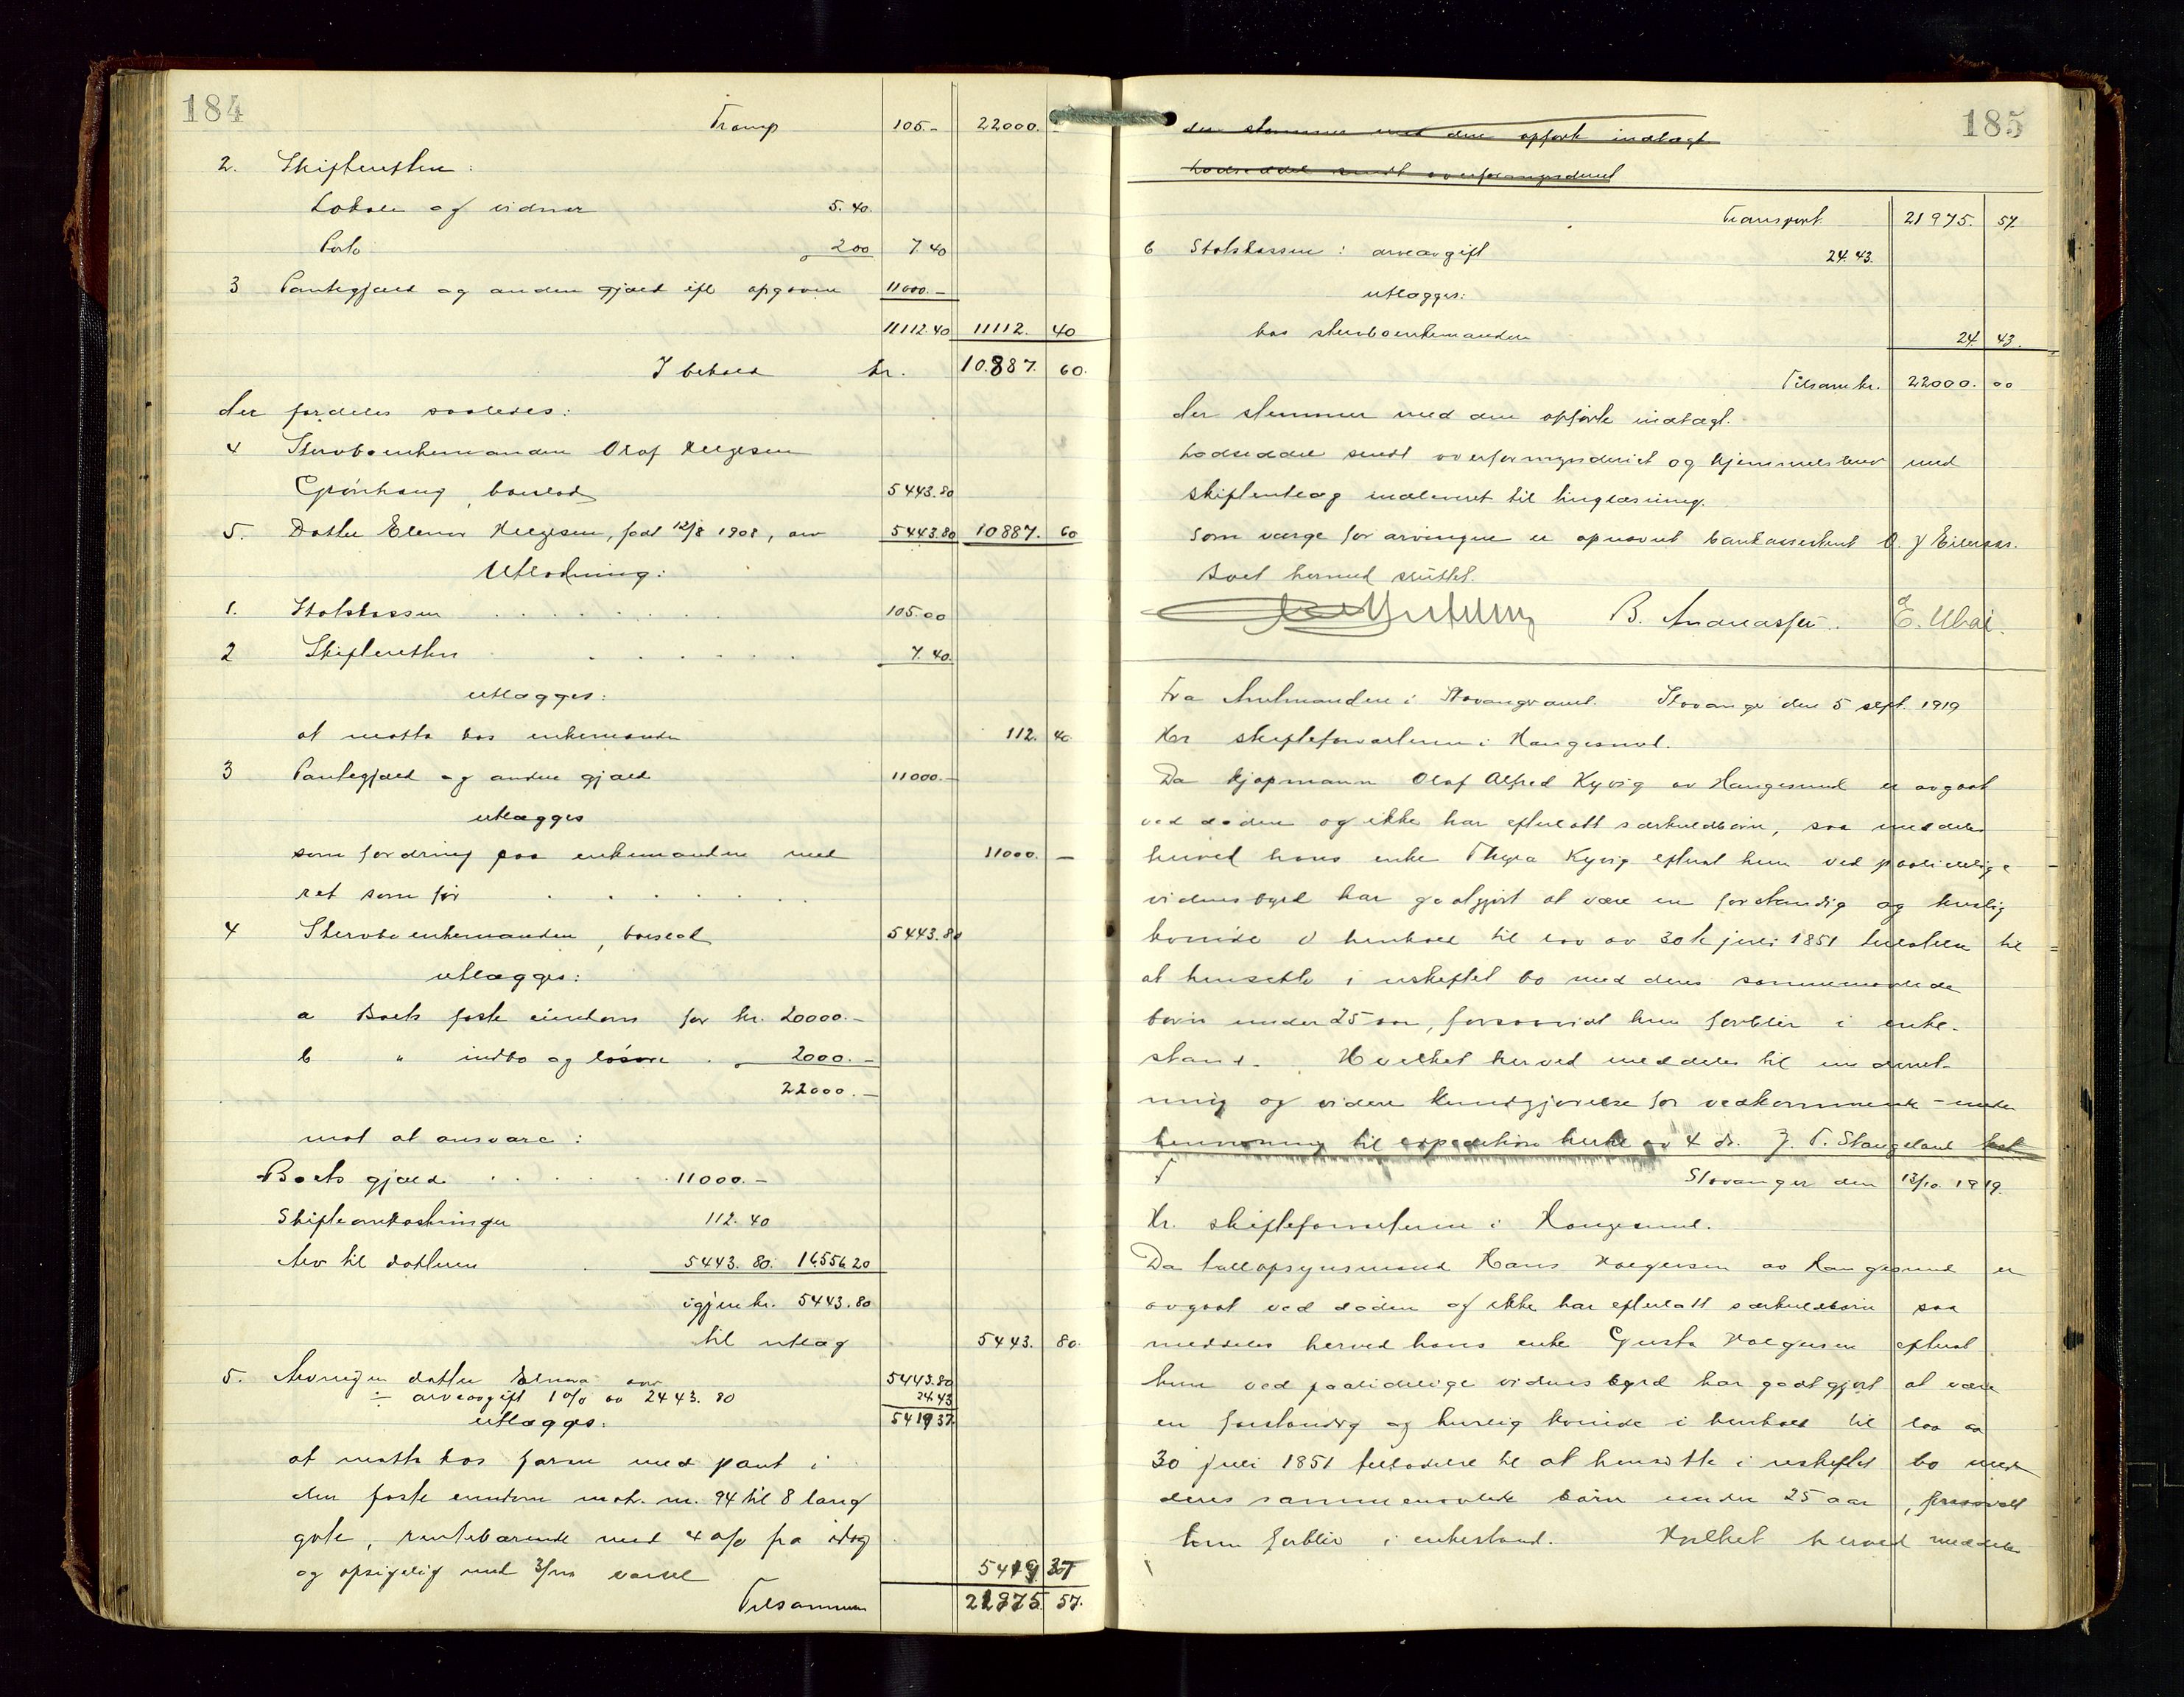 184
Transp 105.- 22000. -
2. Skifteretten:
Lokale og vidner 5.40.
Porto 2.00 7.40
3 Pantegjæld og anden gjæld ifl opgave 11000.-
11112.40 11112. 40
I behold kr. 10.887. 60.
der fordeles saaledes:
4 Stervboenkemanden Olaf Helgesen
Grönhaug, boeslod 5443.80
5. Datter Elenor Helgesen, født 12/8 1908, arv 5443.80 10887. 60
Utlodning:
1. Statskassen 105.00
2 Skifteretten 7.40.
utlægges:
at motta hos enkemanden 112. 40
3 Pantegjæld og anden gjæld 11000.-
utlægges
som fordring paa enkemanden med 11000. -
ret som før
4 Stervboenkemanden, boeslod 5443.80
utlægges:
a Boets faste eiendom for kr. 20000.-
b " indbo og løsøre . 2000.-
22000.-
mot at ansvare:
Boets gjæld 11000.-
Skifteomkostninger 112.40
Arv til datteren 5443.80. 16556.20
igjen kr. 5443.80
til utlæg 5443. 80.
5. Arvingen datter arv 5443.80
÷ arveavgift 1 o/o av 2443.80 24.43
utlægges: 5419.37
at motta hos faren med pant i
den faste eiendom matr. nr. 94 til 8 lang
gate, rentebærende med 4 o/o fra idag
og opsigelig med 3/m varsel 5419 37
Tilsammen 21975. 57.
185
der stemmer med den opførte indtægt
Lodseddel sendt overformynderiet
Transport 21975. 57
6 Statskassen: arveavgift 24.43.
utlægges:
hos stervboenkemanden 24. 43.
Tilsam kr. 22000. 00
der stemmer med den opførte indtægt.
Lodseddel sendt overformynderiet og hjemmelsbrev med
skifteutlæg indleveret til tinglæsning.
Som værge for arvingen er opnævnt bankassistent O. J
Boet hermed sluttet.
B. Andreassen. E.
Fra Amtmanden i Stavanger amt. Stavanger den 5 sept. 1919
Herr skifteforvalteren i Haugesund.
Da kjøpmann Olaf Alfred Kyvig av Haugesund er avgaat
ved døden og ikke har efterlatt særkuldbørn, saa meddeles
herved hans enke Thyra Kyvig efterat hun ved paalidelige
vidnesbyrd har godtgjort at være en forstandig og huslig
kvinde i henhold til lov av 30te juli 1851 tilladelse til
at hensitte i uskiftet bo med deres sammenavlede
børn under 25 aar, forsaavidt hun forblir i enke-
stand. Hvilket herved meddeles til underret-
ning og videre kundgjørelse for vedkommende - under
henvisning til expedition herfra av 4 ds. J. T. Stangeland
Stavanger den 13/10. 1919.
Hr. skifteforvalteren i Haugesund.
Da toldopsynsmand Hans Holgersen av Haugesund er
avgaat ved døden og ikke har efterlatt særkuldbørn saa
meddeles herved hans enke Gusta Holgersen efterat
hun ved paalidelige vidnesbyrd har godtgjort at være
en forstandig og huslig kvinde i henhold til lov av
30 juli 1851 tilladelse til at hensitte i uskiftet bo med
deres sammenavlede børn under 25 aar, forsaavidt
hun forblir i enkestand. Hvilket herved meddeles